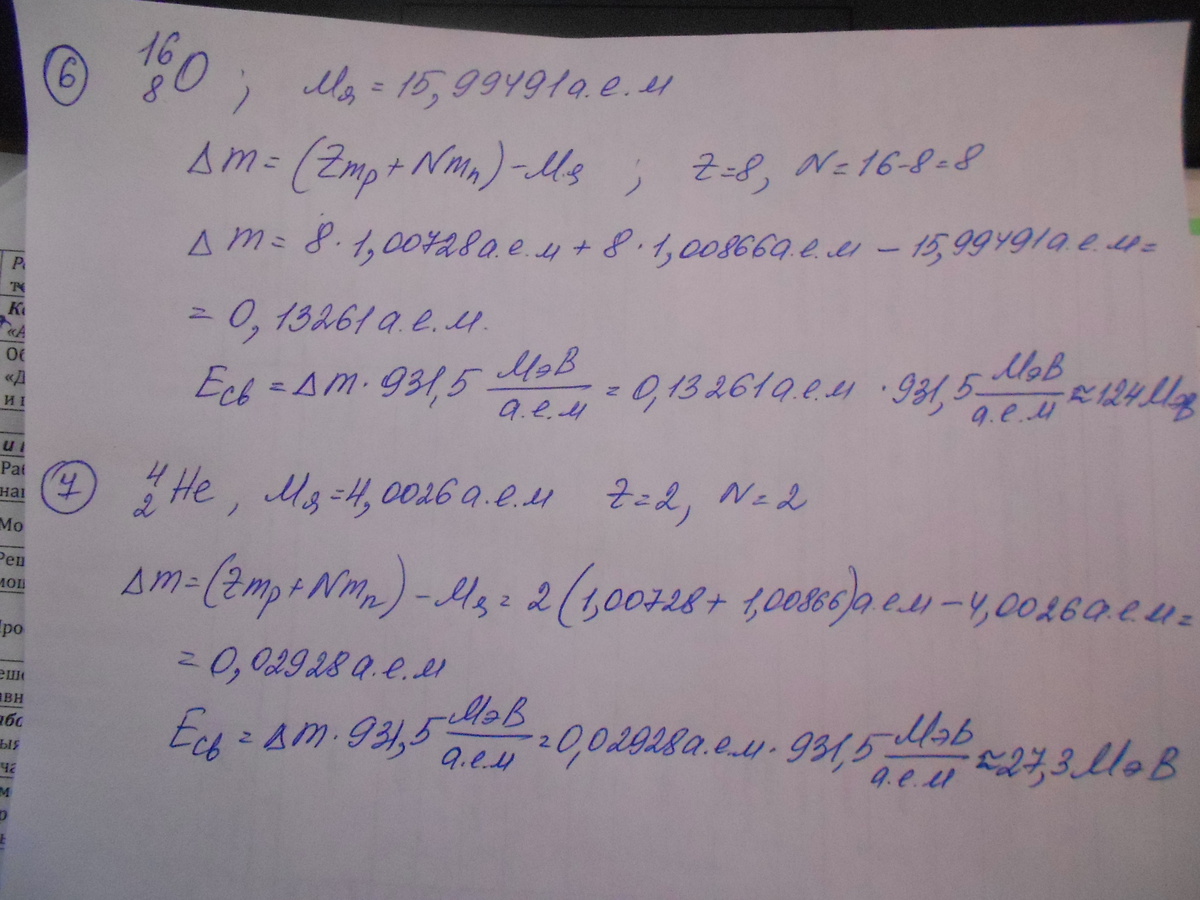 6 ¹⁶₈O ; Mя = 15,99491 а.е.м
Δm = (Zmp + Nmn) - Mя ; Z=8, N = 16-8=8
Δm = 8 · 1,00728 а.е.м + 8 · 1,00866 а.е.м - 15,99491 а.е.м =
= 0,13261 а.е.м.
Eсв = Δm · 931,5 МэВ/а.е.м = 0,13261 а.е.м · 931,5 МэВ/а.е.м ≈ 124 МэВ
7 ⁴₂He, Mя = 4,0026 а.е.м Z = 2, N = 2
Δm = (Zmp + Nmn) - Mя = 2 (1,00728 + 1,00866) а.е.м - 4,0026 а.е.м =
= 0,02928 а.е.м
Eсв = Δm · 931,5 МэВ/а.е.м = 0,02928 а.е.м · 931,5 МэВ/а.е.м ≈ 27,3 МэВ